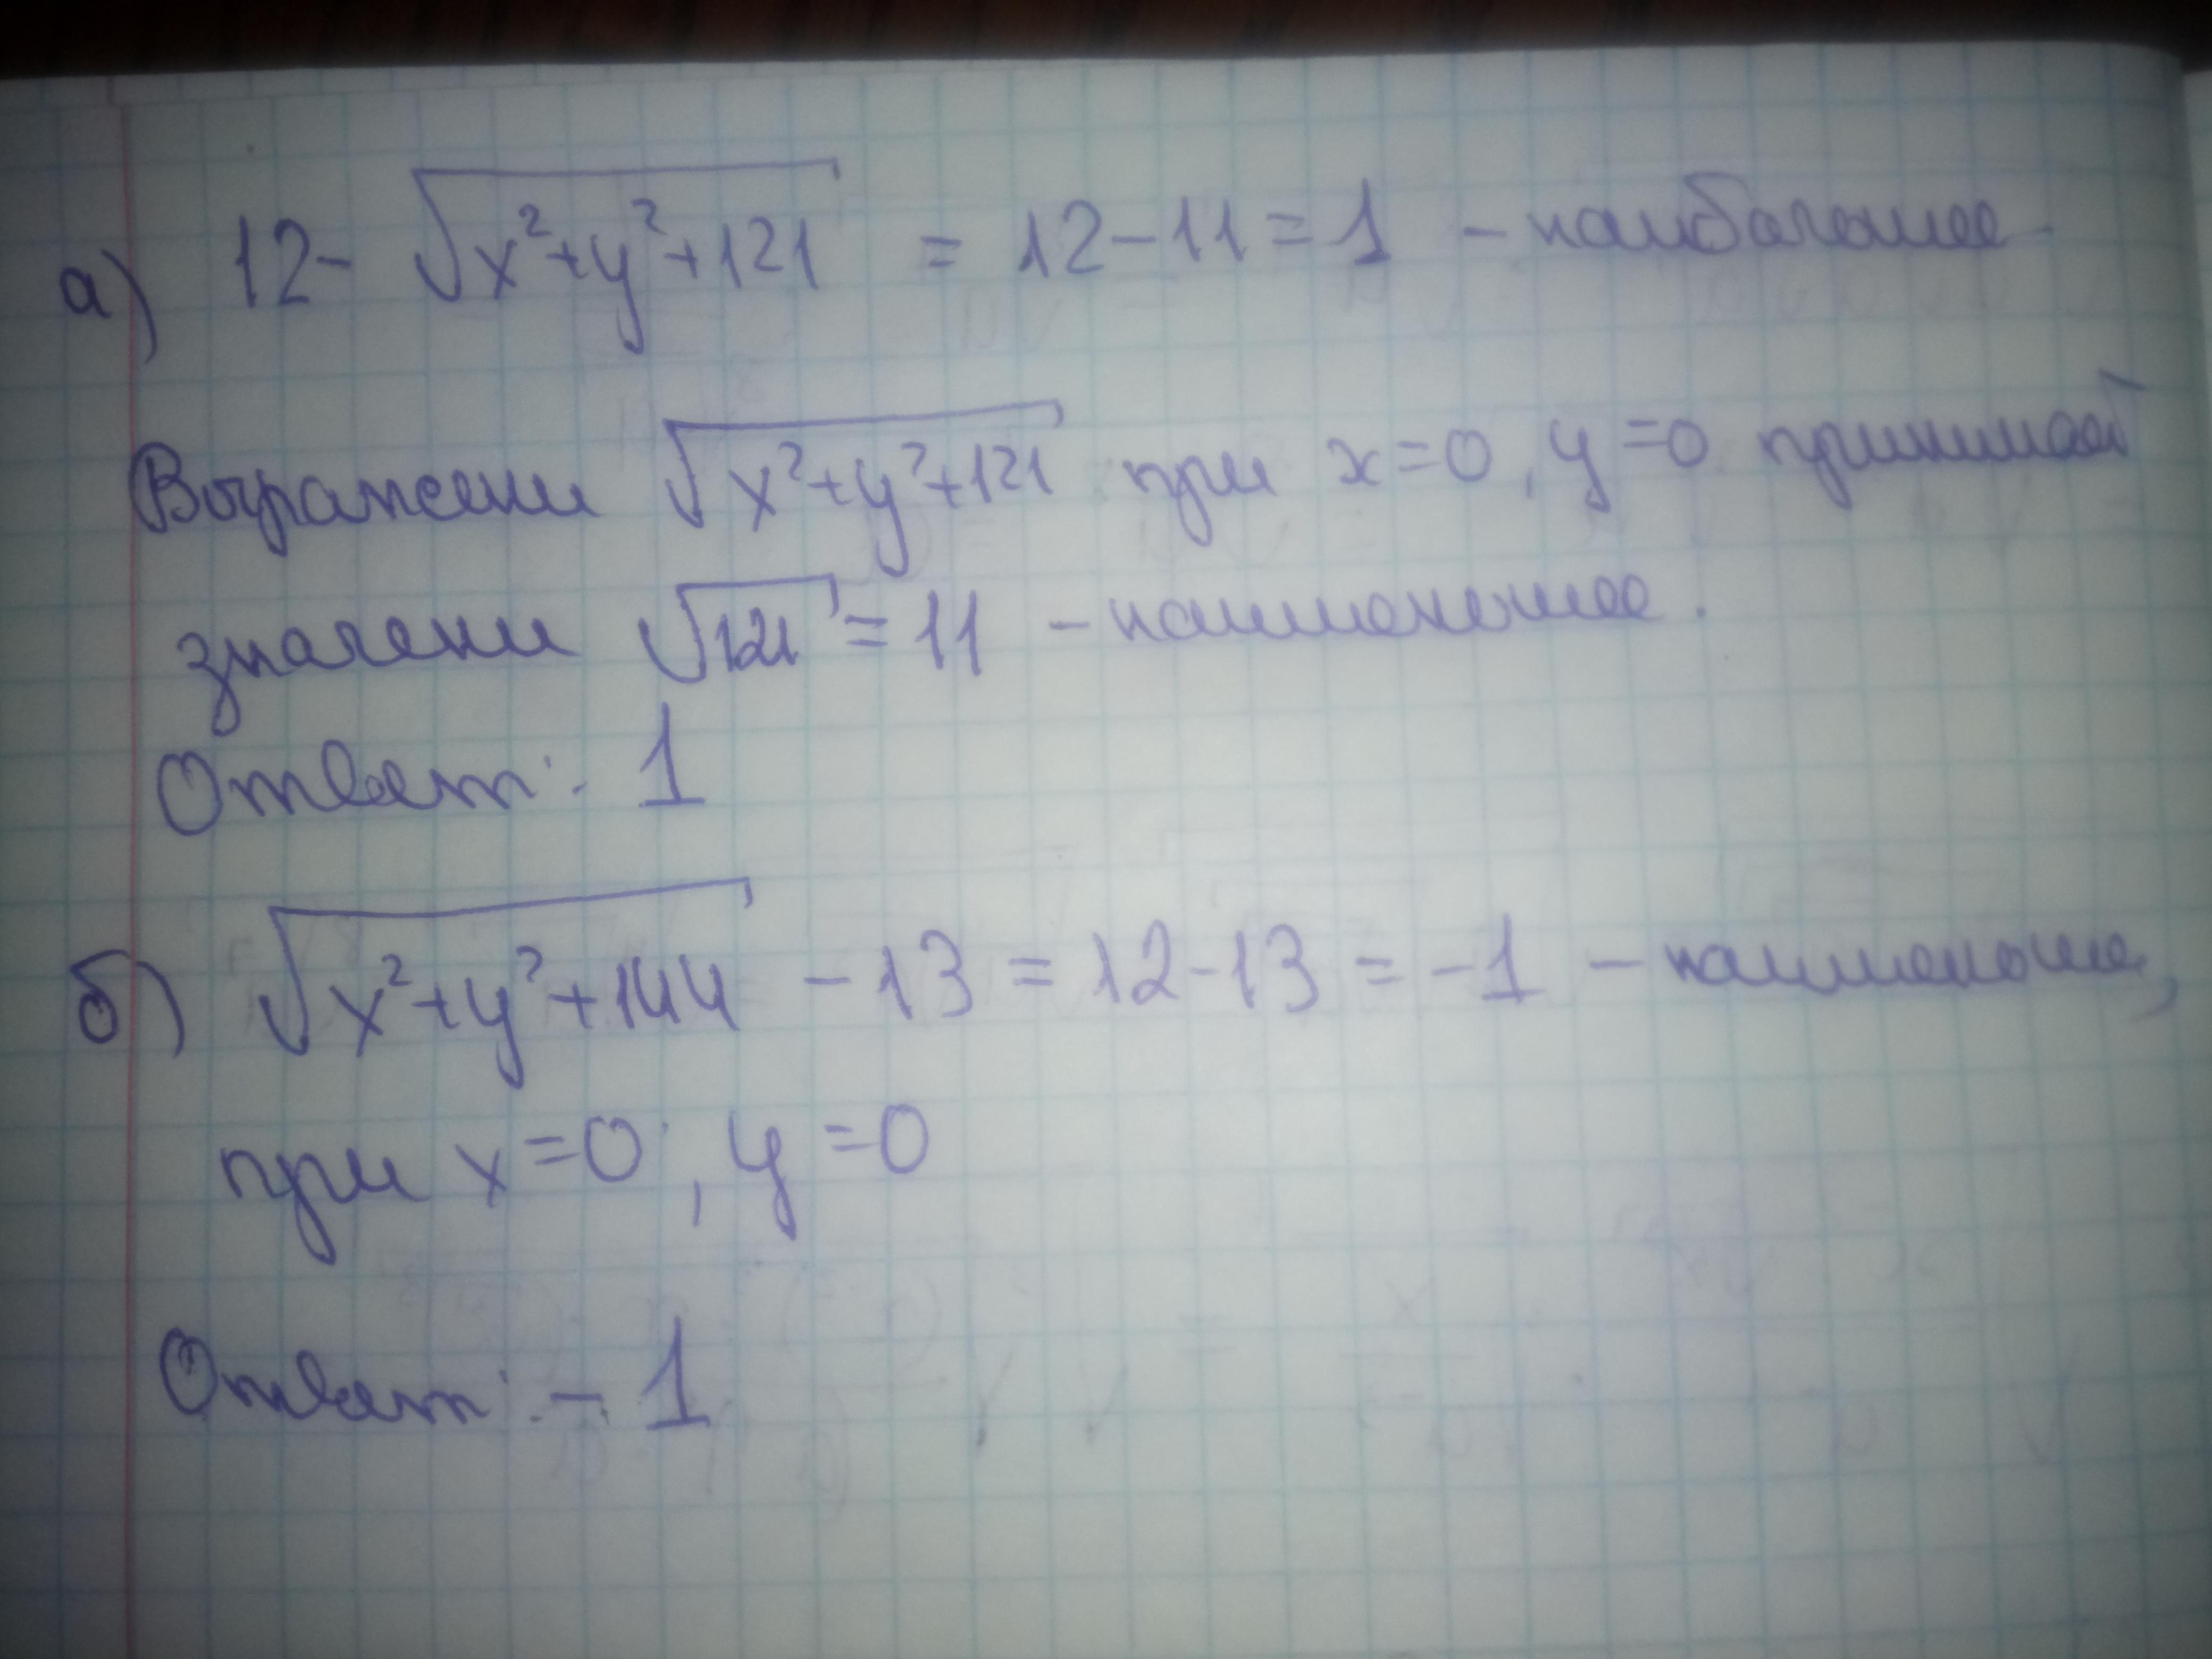 а) 12- √x²+y²+121 = 12-11=1 - наибольшее
Выражени √x²+y²+121 при x=0, y=0 принимает
значени √121 = 11 - наименьшее.
Ответ: 1
б) √x²+y²+144 - 13 = 12-13 = -1 - наименьше,
при x=0, y=0
Ответ: - 1